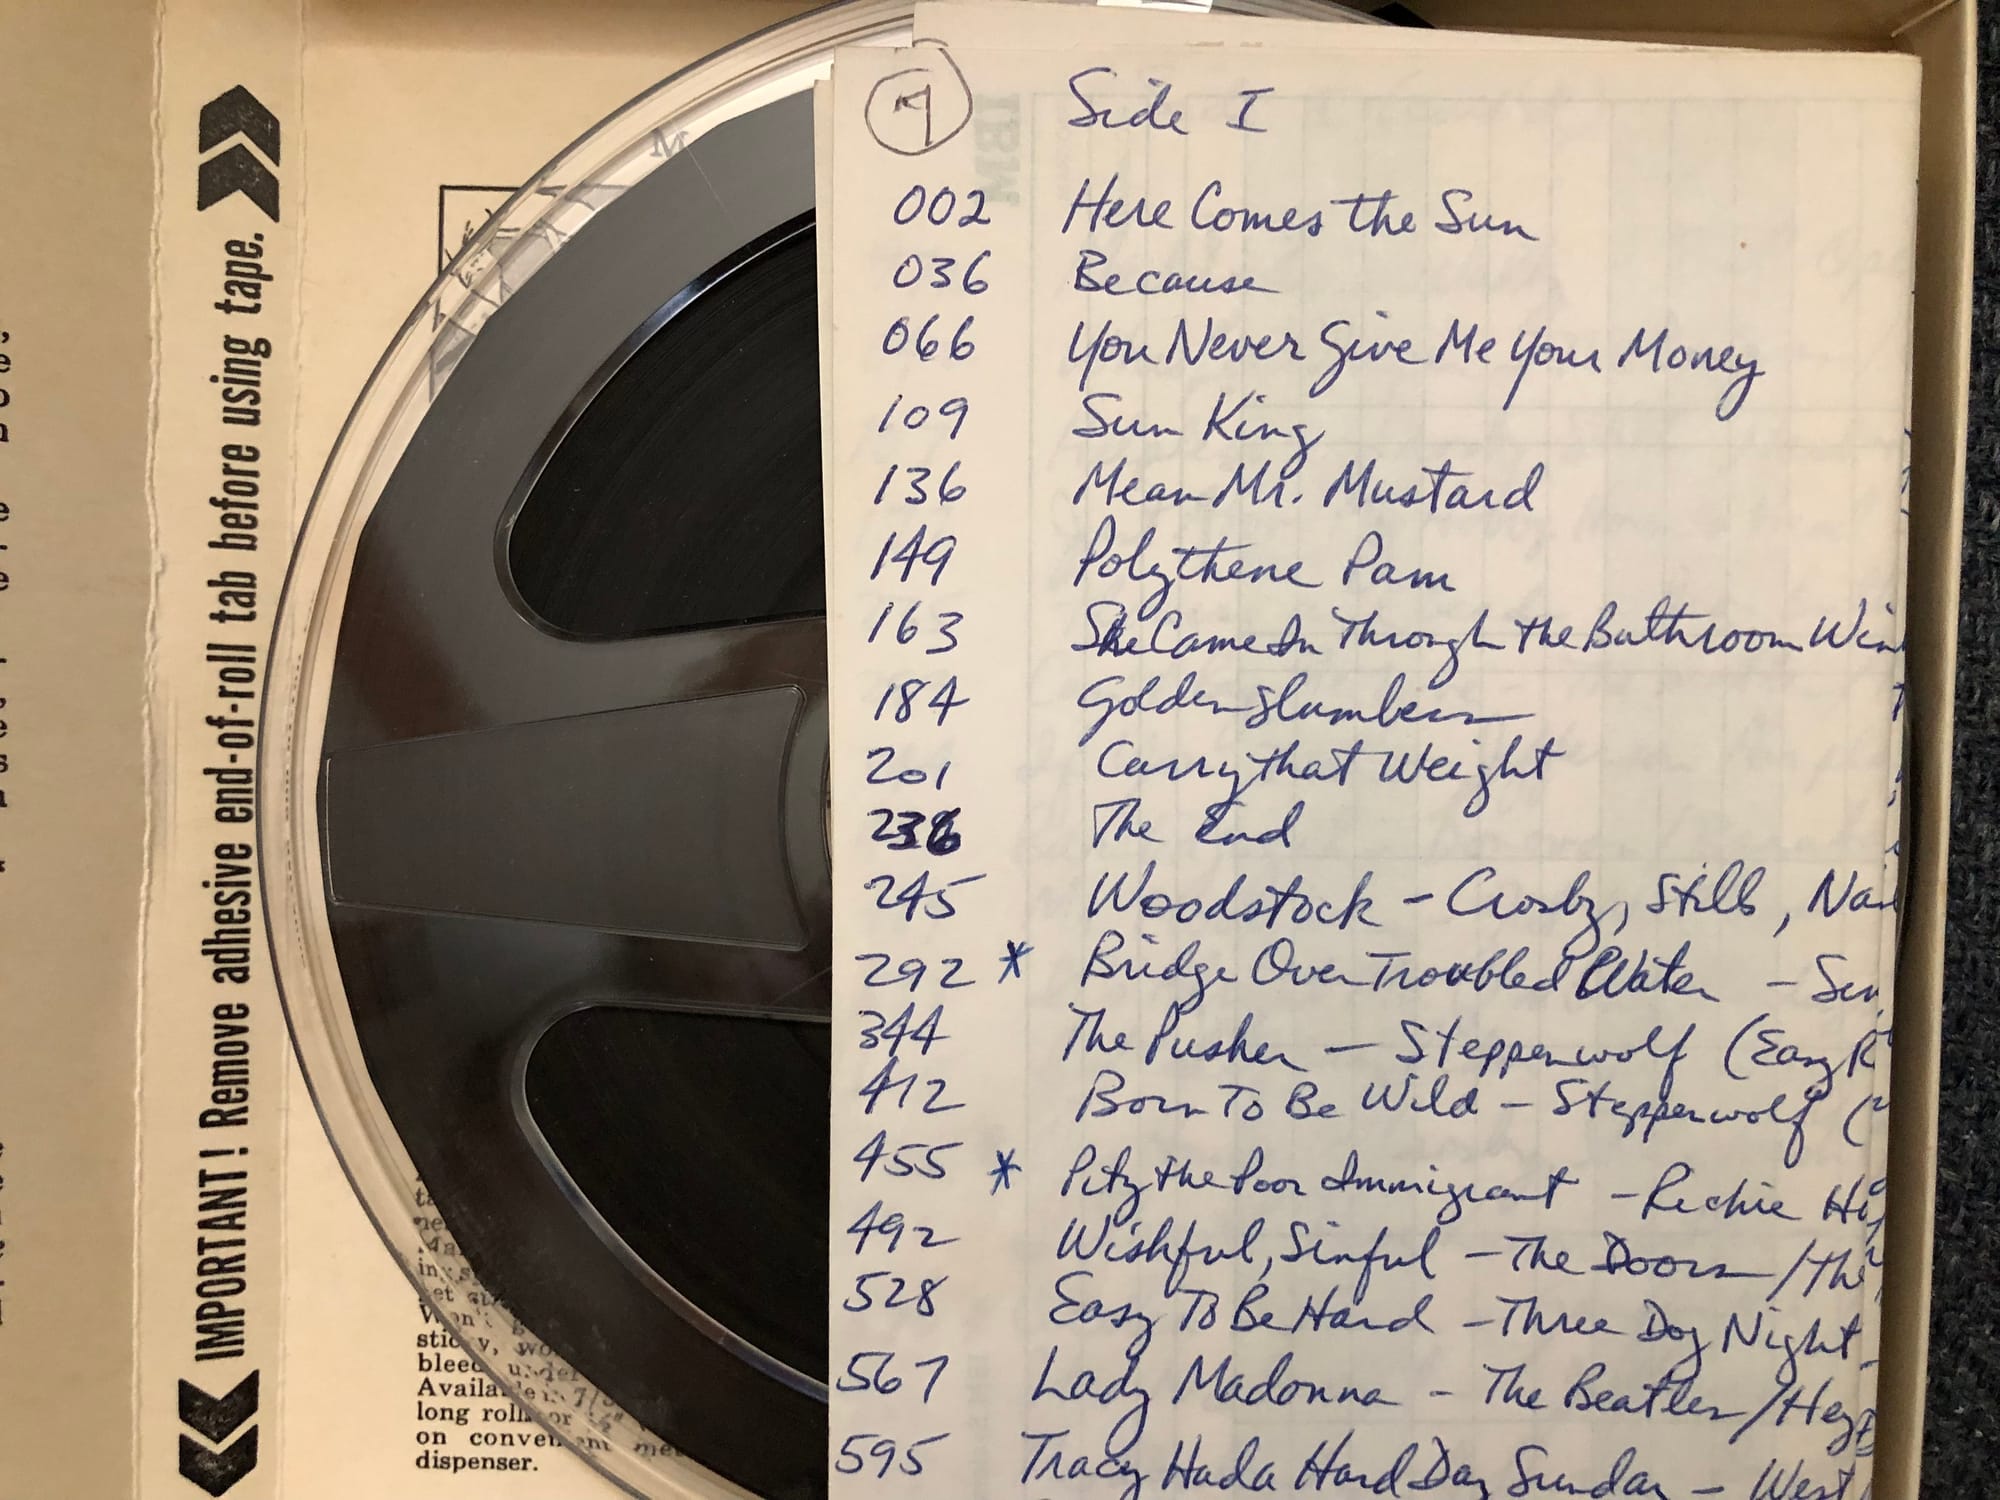 IMPORTANT! Remove adhesive end-of-roll tab before using tape.
9
Side I
002 Here Comes the Sun
036 Because
066 You Never Give Me Your Money
109 Sun King
136 Mean Mr. Mustard
149 Polythene Pam
163 She Came In Through the Bathroom Win
184 Golden Slumbers
201 Carry that Weight
236 The End
245 Woodstock - Crosby, Stills, Na
292 * Bridge Over Troubled Water - Sim
344 The Pusher - Steppenwolf (Easy R
412 Born To Be Wild - Steppenwolf (
455 * Pity the Poor Immigrant - Richie Ha
492 Wishful, Sinful - The Doors / The
528 Easy To Be Hard - Three Dog Night -
567 Lady Madonna - The Beatles / Hey
595 Tracy Had a Hard Day Sunday - West
IBM
sticky,
bleed under
long roll or
on convenient
dispenser.